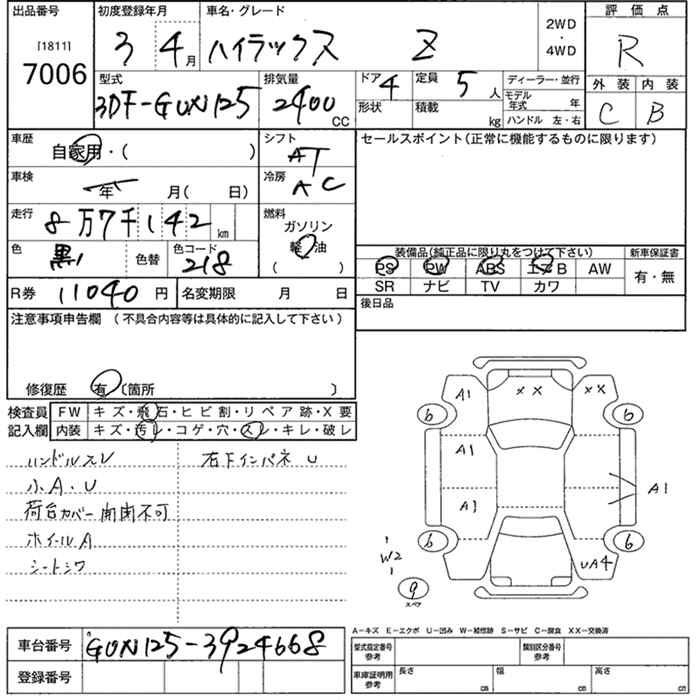 出品番号 初度登録年月 車名・グレード 2WD・4WD 評価点
[1811] 7006 3 4月 ハイラックス Z R
型式 排気量 ドア 4 定員 5人 ディーラー・並行 外装 内装
3DF-GUN125 2400 CC 形状 積載 kg モデル年式 年 C B
ハンドル 左・右
車歴 自家用・( ) シフト AT セールスポイント(正常に機能するものに限ります)
車検 年 月( 日) 冷房 AC
走行 8万7千142km 燃料 ガソリン
軽油
( )
色 黒 色替 色コード 218
装備品(純正品に限り丸をつけて下さい) 新車保証書
PS PW ABS エアB AW 有・無
SR ナビ TV カワ
R券 11040円 名変期限 月 日 後日品
注意事項申告欄 (不具合内容等は具体的に記入して下さい)
修復歴 有 〔箇所 〕
検査員 FW キズ・飛石・ヒビ割・リペア跡・X要
記入欄 内装 キズ・汚レ・コゲ・穴・スレ・キレ・破レ
ハンドルスレ 右下インパネU
小A・U
荷台カバー開閉不可
ホイールA
シートシワ
A1 XX XX
6 6
A1
A1 A1
6 6
W2 UA4
9
スペア
A-キズ E-エクボ U-凹み W-補修跡 S-サビ C-腐食 XX-交換済
車台番号 GUN125-3924668 型式指定番号 参考 類別区分番号 参考
登録番号 車庫証明用 参考 長さ cm 幅 cm 高さ cm